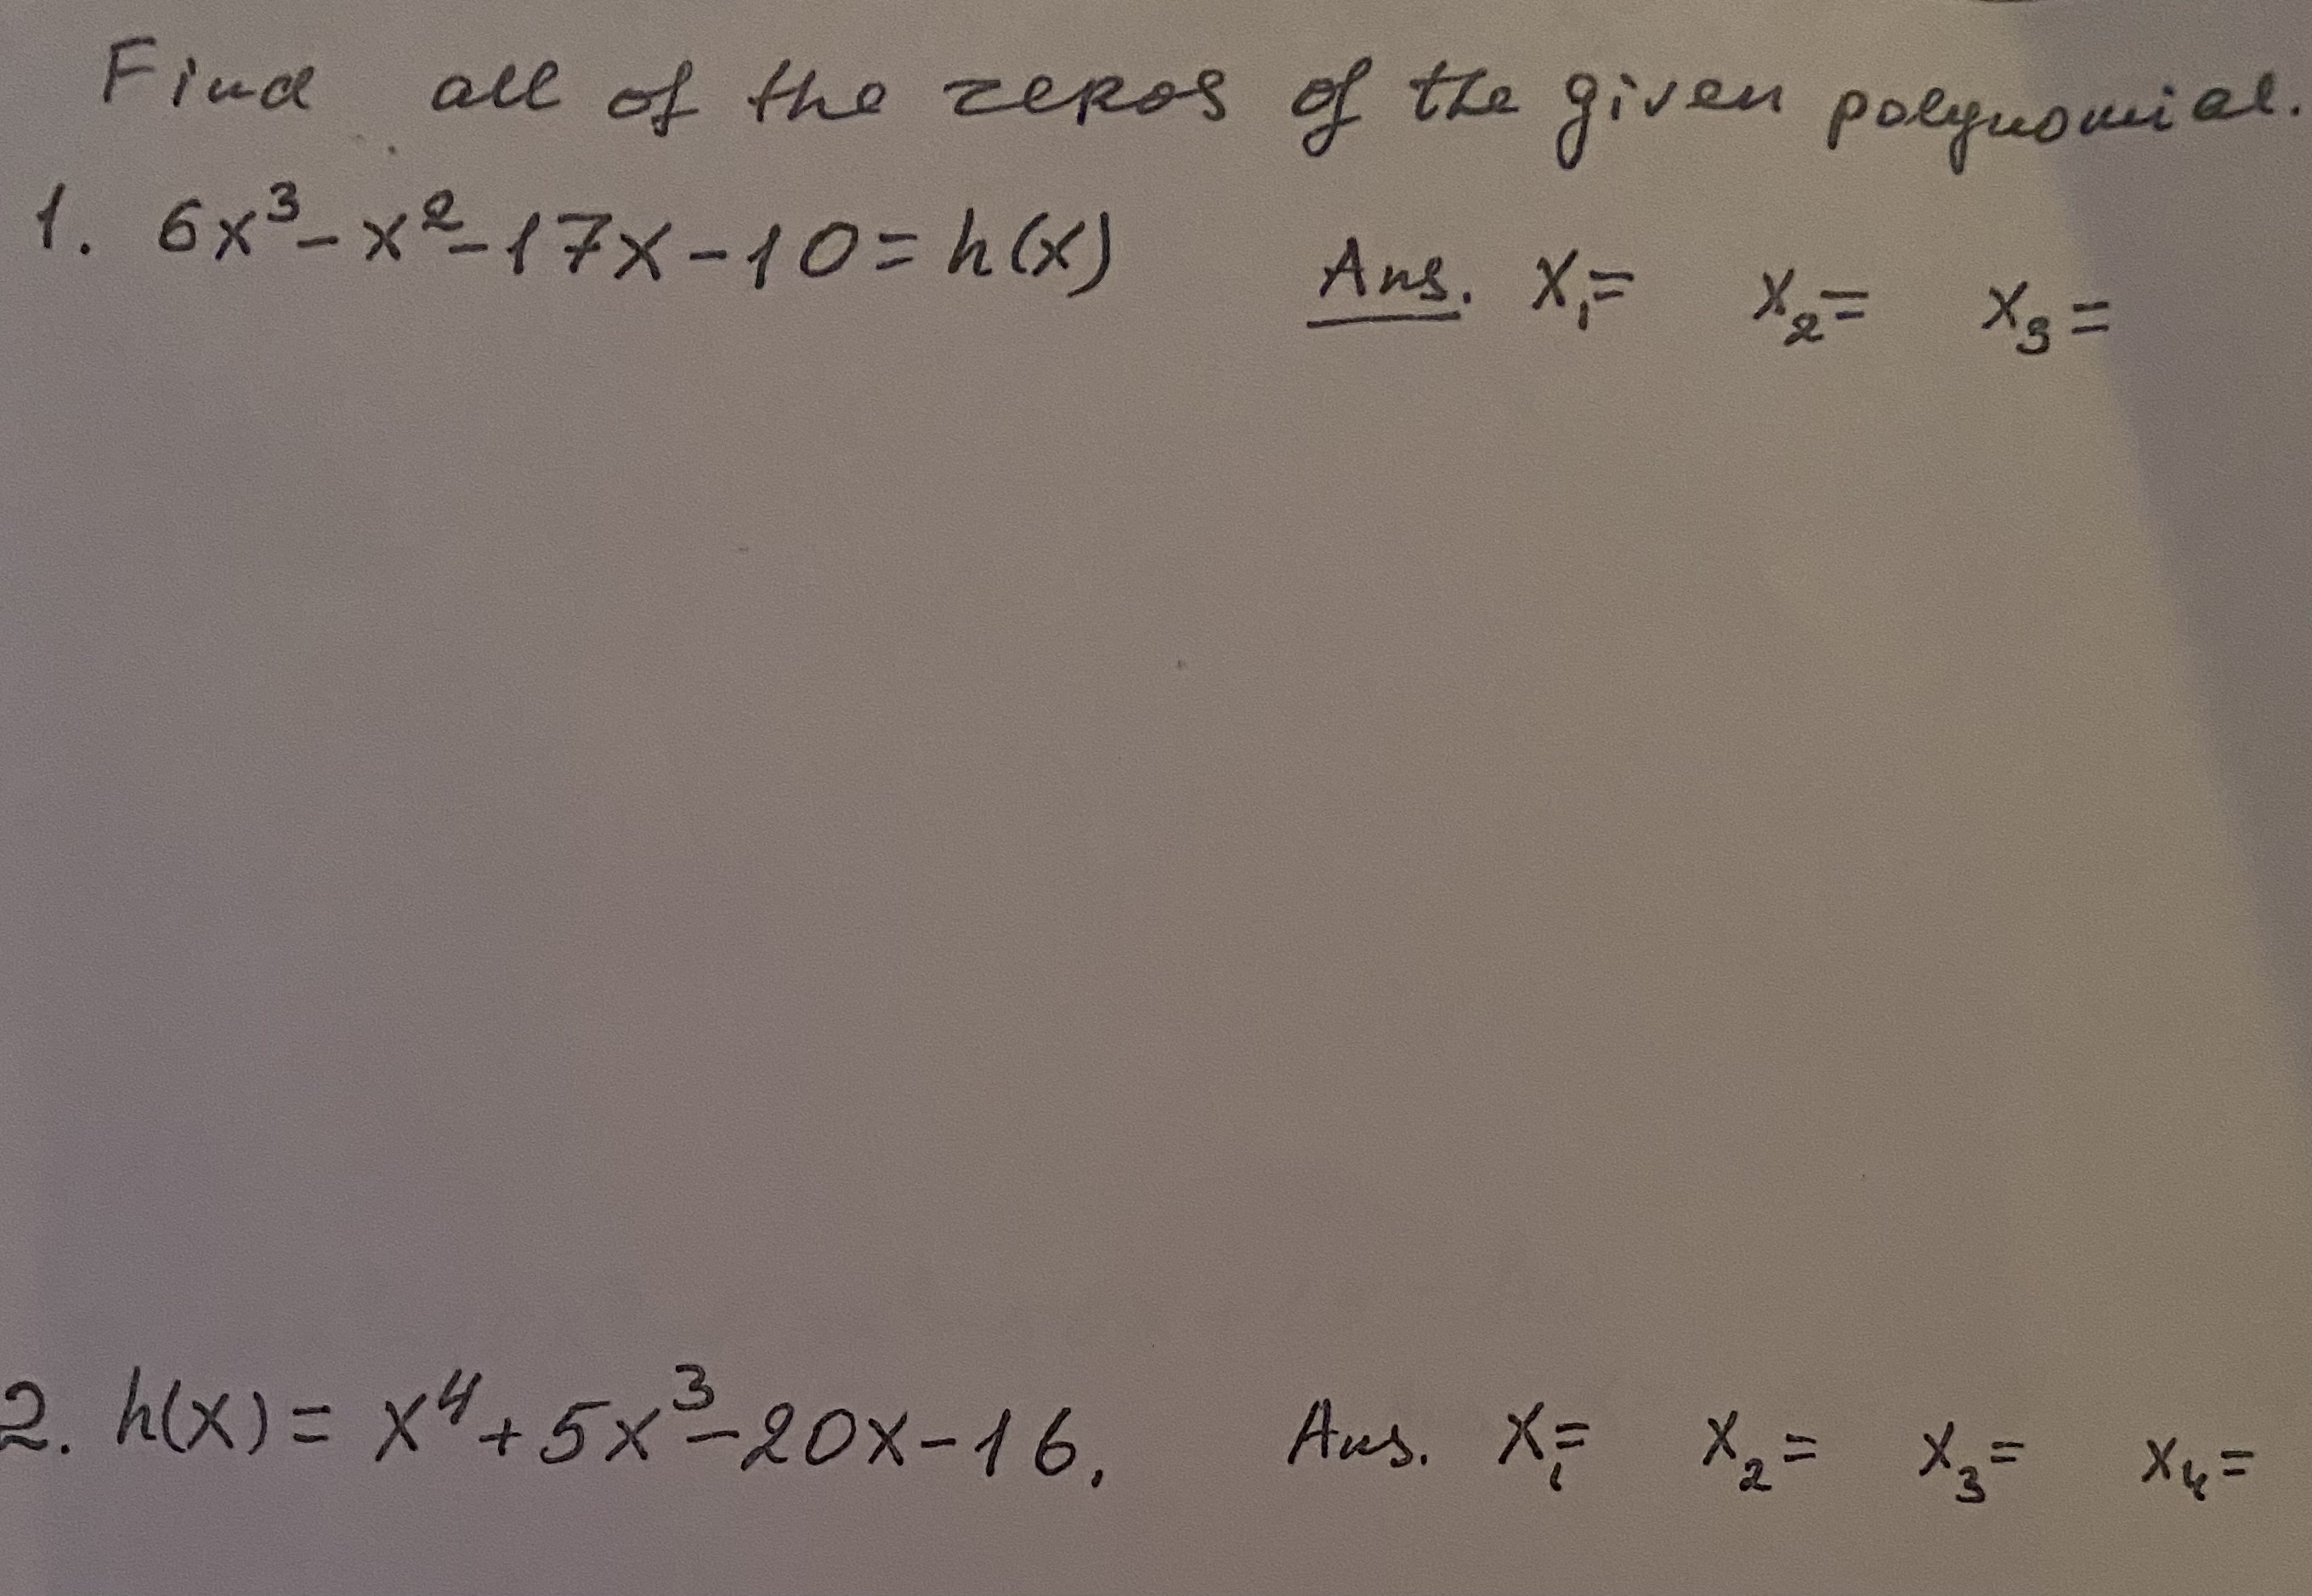 Find all of the zeros of the given polynomial.
1. 6x³-x²-17x-10=h(x) Ans. x₁= x₂= x₃=
2. h(x)= x⁴+5x³-20x-16. Ans. x₁= x₂= x₃= x₄=